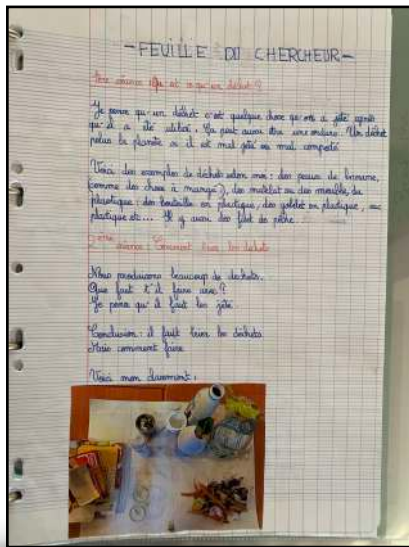 - FEUILLE DU CHERCHEUR -
1ère séance : Qu'est ce qu'un déchet ?
Je pense qu'un déchet c'est quelque chose qu'on a jeté après
qu'il a été utilisé. Ça peut aussi être une ordure. Un déchet
pollue la planète si il est mal jeté ou mal composté
Voici des exemples de déchets selon moi : des peaux de banane,
comme des choses à manger), des matelat ou des meubles, du
plastique : des bouteilles en plastique, des gobelet en plastique, sac
plastique etc... Il y aussi des filet de pêche.
2ème séance : Comment trier les déchets
Nous produisons beaucoup de déchets.
Que faut t'il faire avec ?
Je pense qu'il faut les jeté.
Conclusion : il faut trier les déchets
Mais comment faire
Voici mon classement :